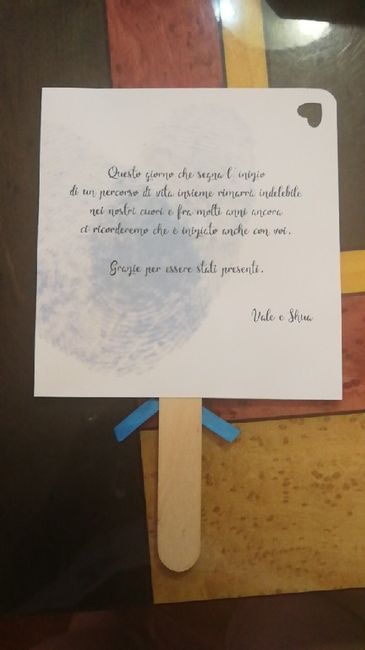 Questo giorno che segna l' inizio
di un percorso di vita insieme rimarrà indelebile
nei nostri cuori e fra molti anni ancora
ci ricorderemo che è iniziato anche con voi.
Grazie per essere stati presenti.
Vale e Shua